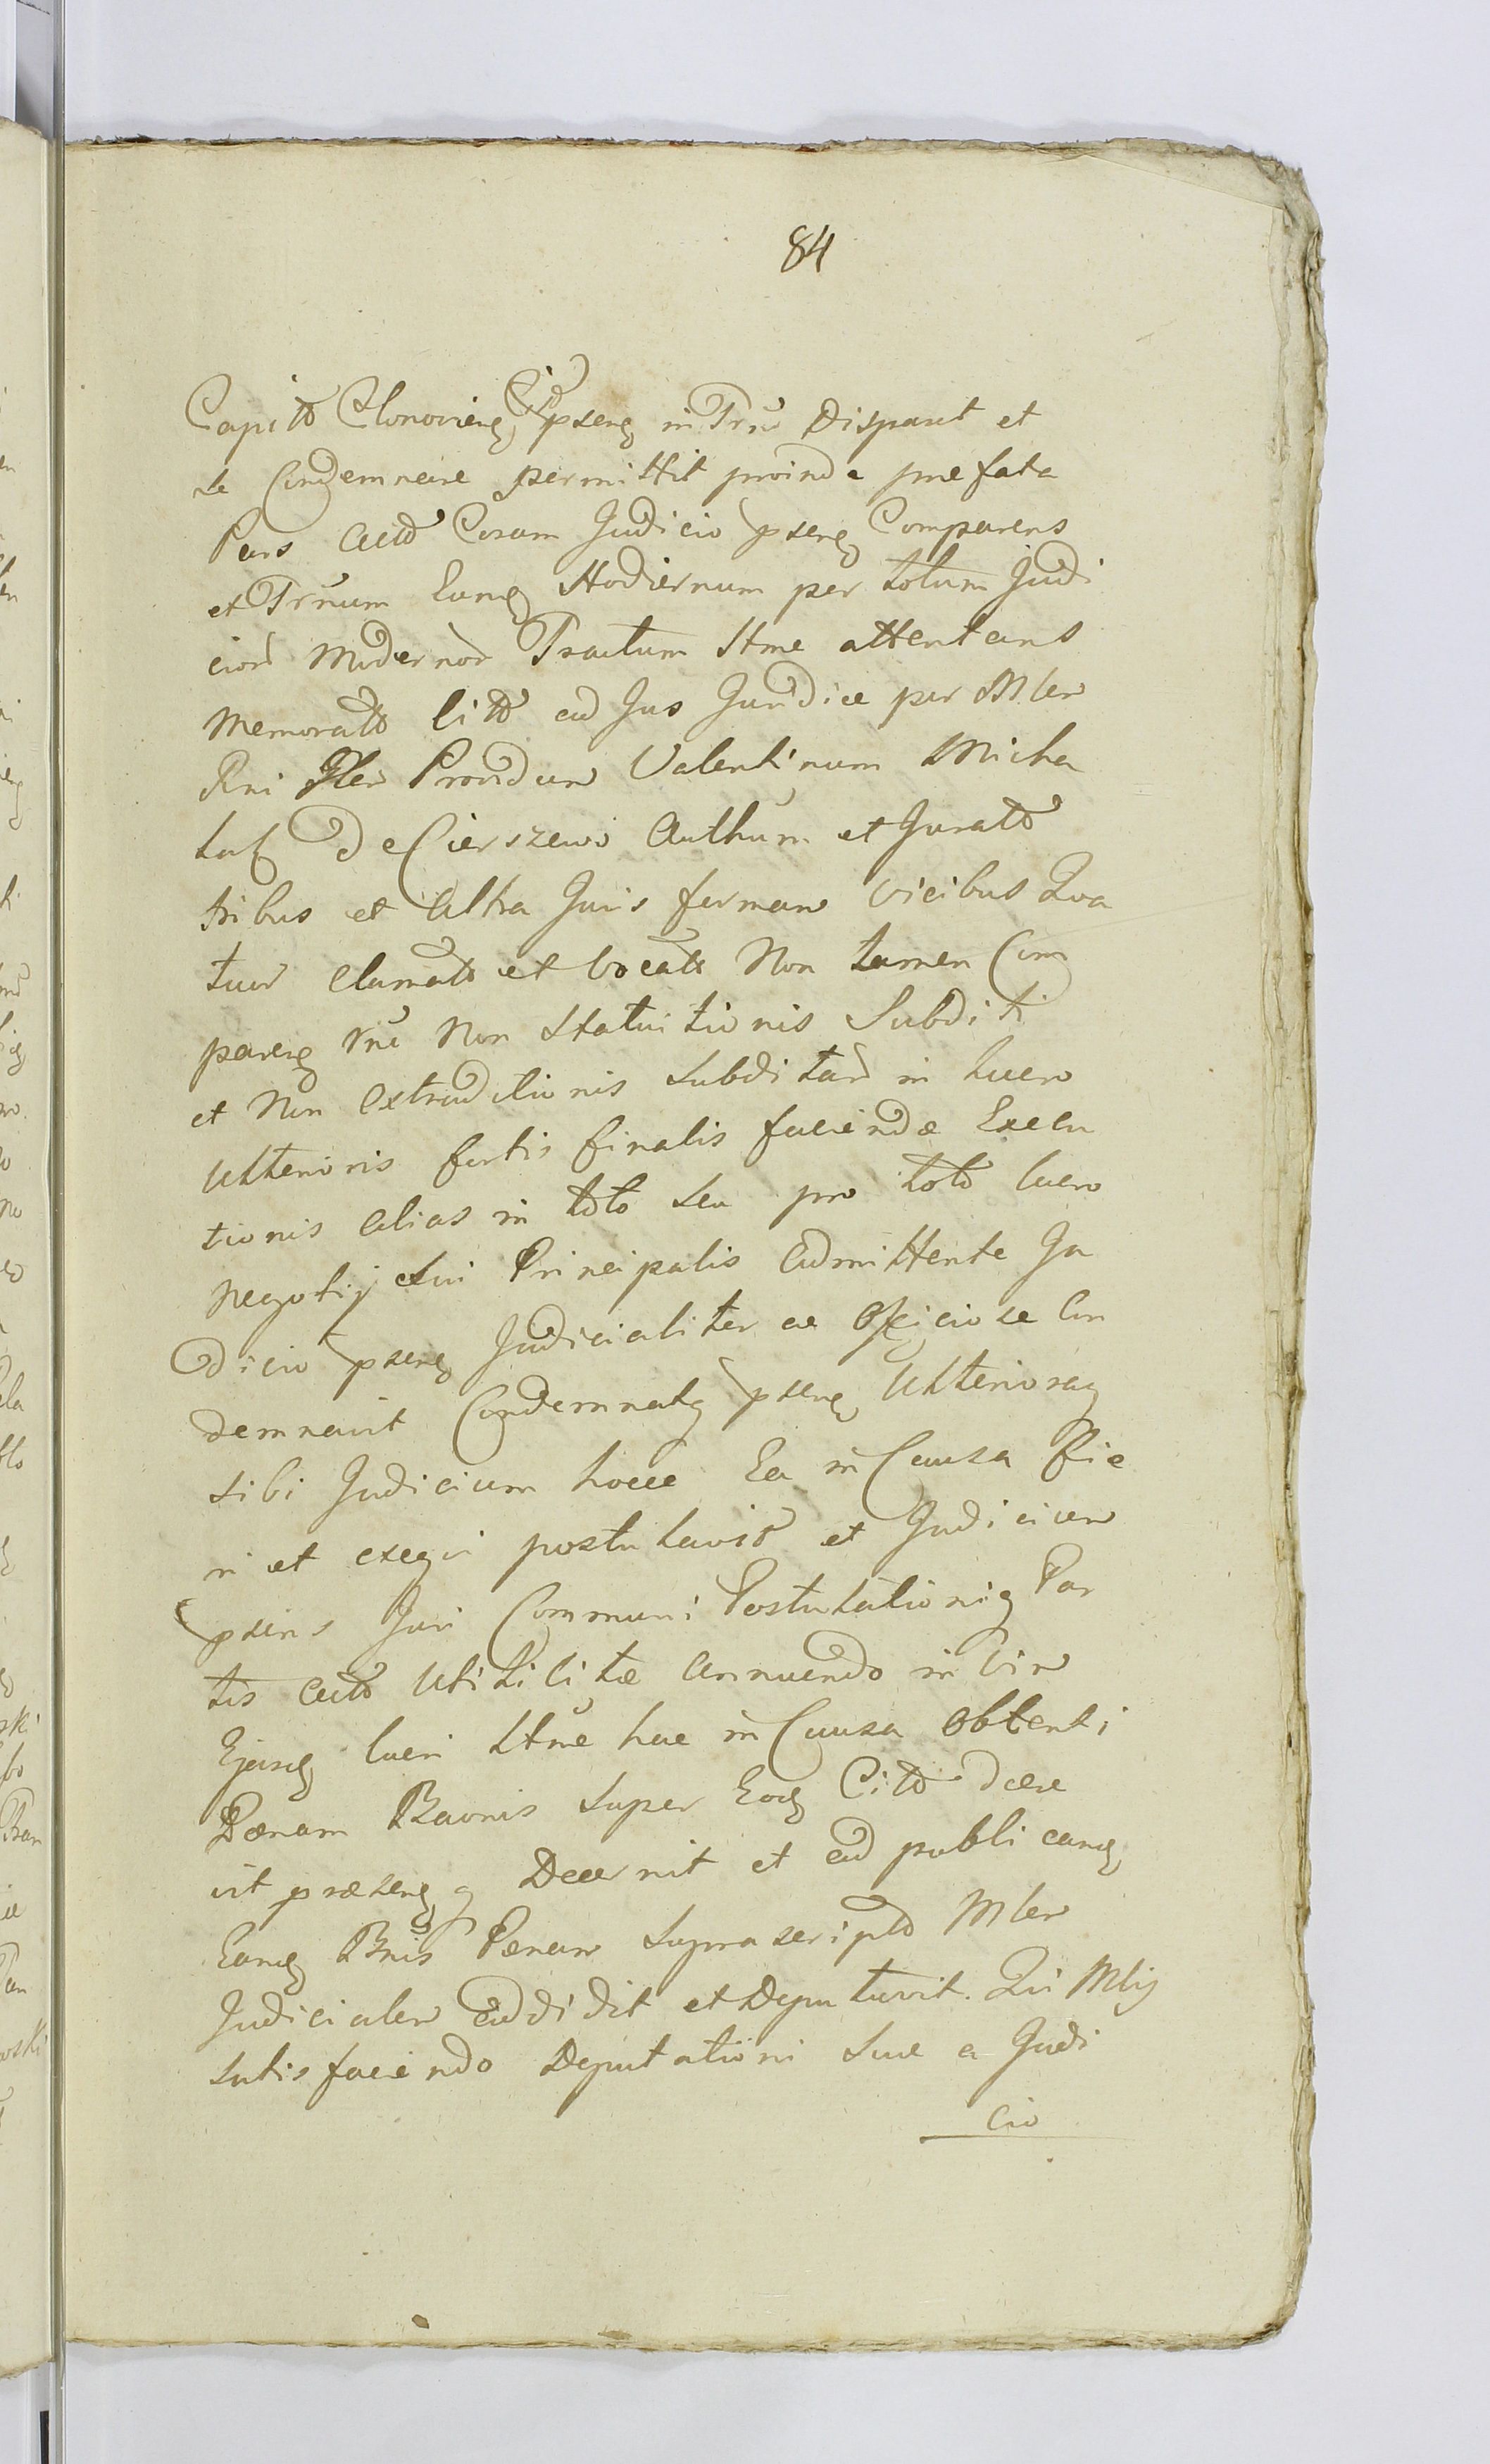 84
Capitt Clonovieng psens in Trno Disparet et
se Condemnare permittit proinde prefata
Pars Act Coram Judicio psenq Comparens
et Trnum Eunq Hodiernum per totum Judi
cior Modernor Tractum Stme attentans
Memoratt Citt ad Jus Juridice per Mlem
Rni Glem Providum Valentinum Micha
lak de Cierszewo Authum et Juratt
tribus et Ultra Juris formam vicibus Qua
tuor Clamatt et Vocatt Non tamen Com
pareng rne Non Statuitionis Subditi
et Non Extraditionis Subditar in lucro
Ulterioris fortis finalis faciendæ Execu
tionis alias in toto seu pro toto lucro
Negotij sui Principalis Admittente Ju
dicio pseng Judicialiter ac Officiose Con
demnavit Condemnatq pseng Ulteriorag
sibi Judicium hocce Ea in Causa fie
ri et exequi postulavit et Judicium
psens Juri Communi Postulationiq Par
tis Act Utilitæ Annuendo in Vim
Ejusq lucri Stme hac in Causa Obtenti
Pœnam Bannis super Eoq Citt decre
vit præsenq q Decernit et ad publicanq
Eanq Bnis Pœnam Suprascriptt Mlem
Judicialem addidit et Deputavit. Qui Mlis
Satisfaciendo Deputationi suæ a Judi
cio